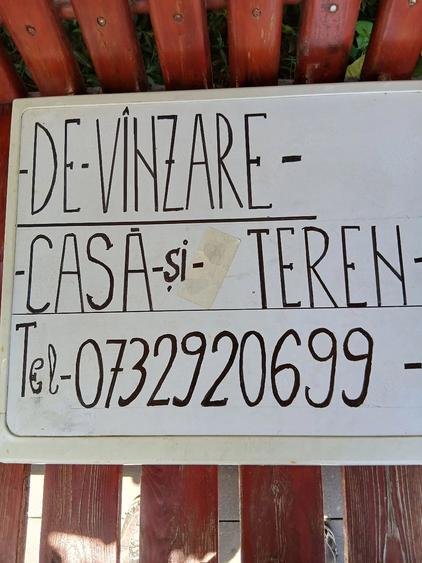 -DE-VÎNZARE-
-CASĂ-și- TEREN-
Tel-0732920699-